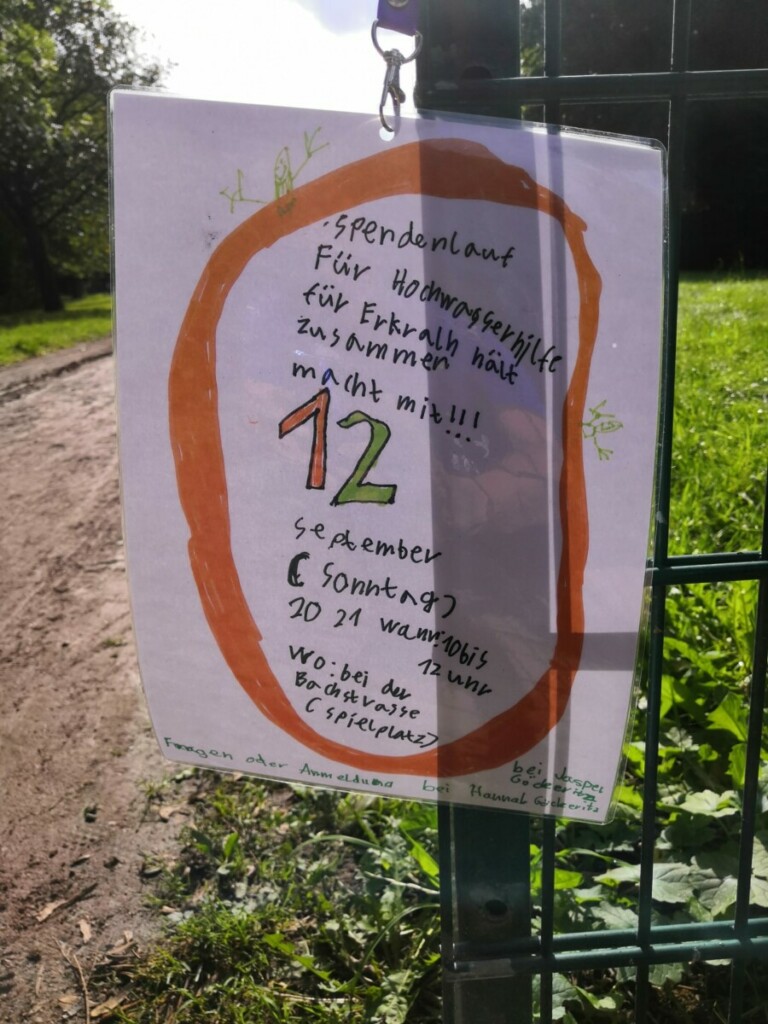 spendenlauf
Für Hochwasserhilfe
für Erkralh hält
zusammen
macht mit!!!
12
september
(Sonntag)
2021 wann:10bis
12 uhr
Wo: bei der
Bachstrasse
(spielplatz)
Fragen oder Anmeldung bei Hannah
bei Jasper